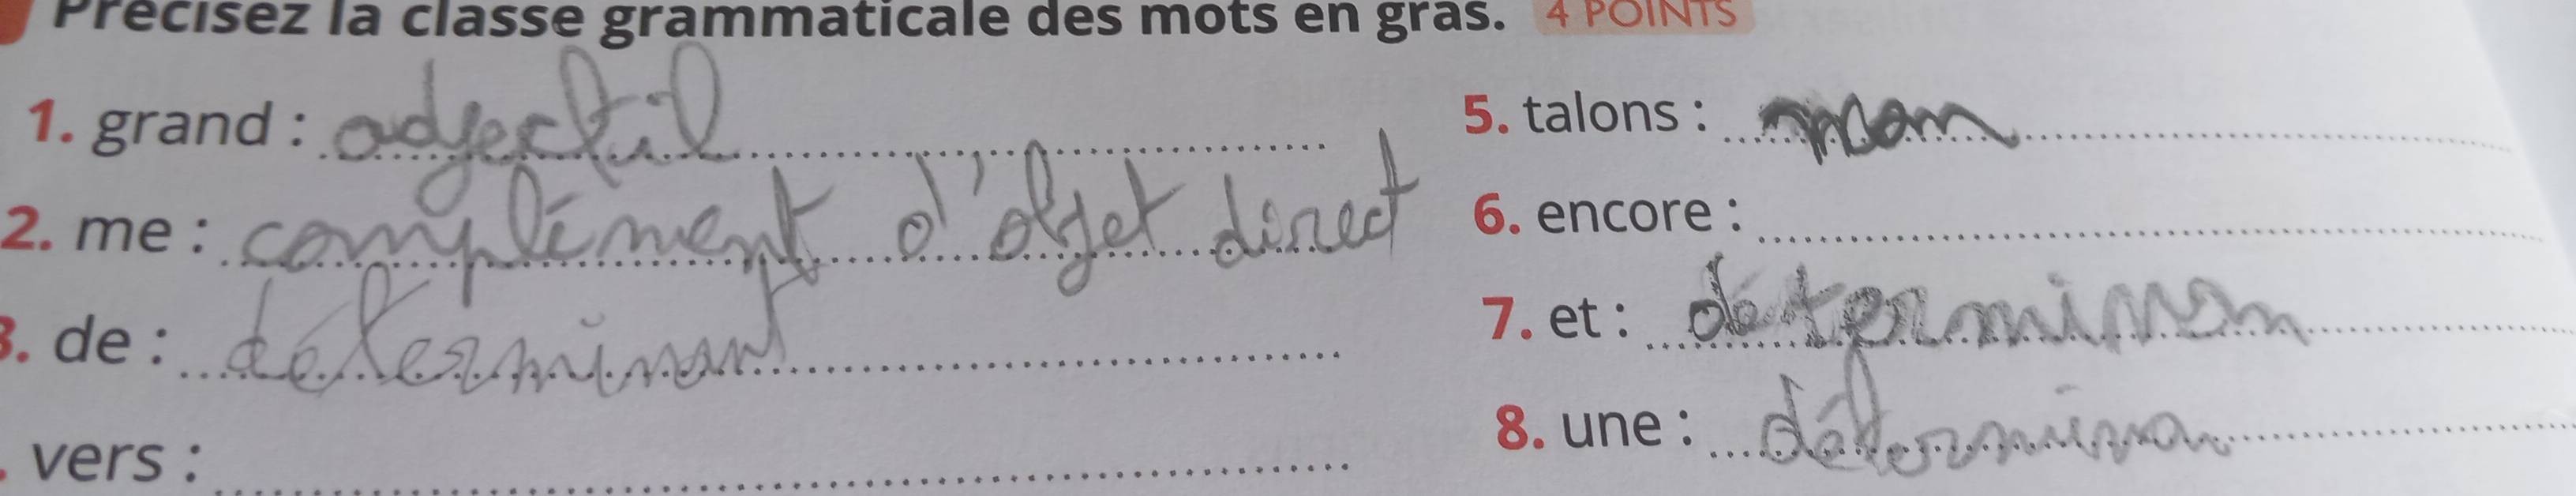 Précisez la classe grammaticale des mots en gras. 4 POINTS
1. grand : adjectif
2. me : complément d'objet direct
3. de : déterminant
. vers :
5. talons : nom
6. encore :
7. et : déterminan
8. une : déterminan